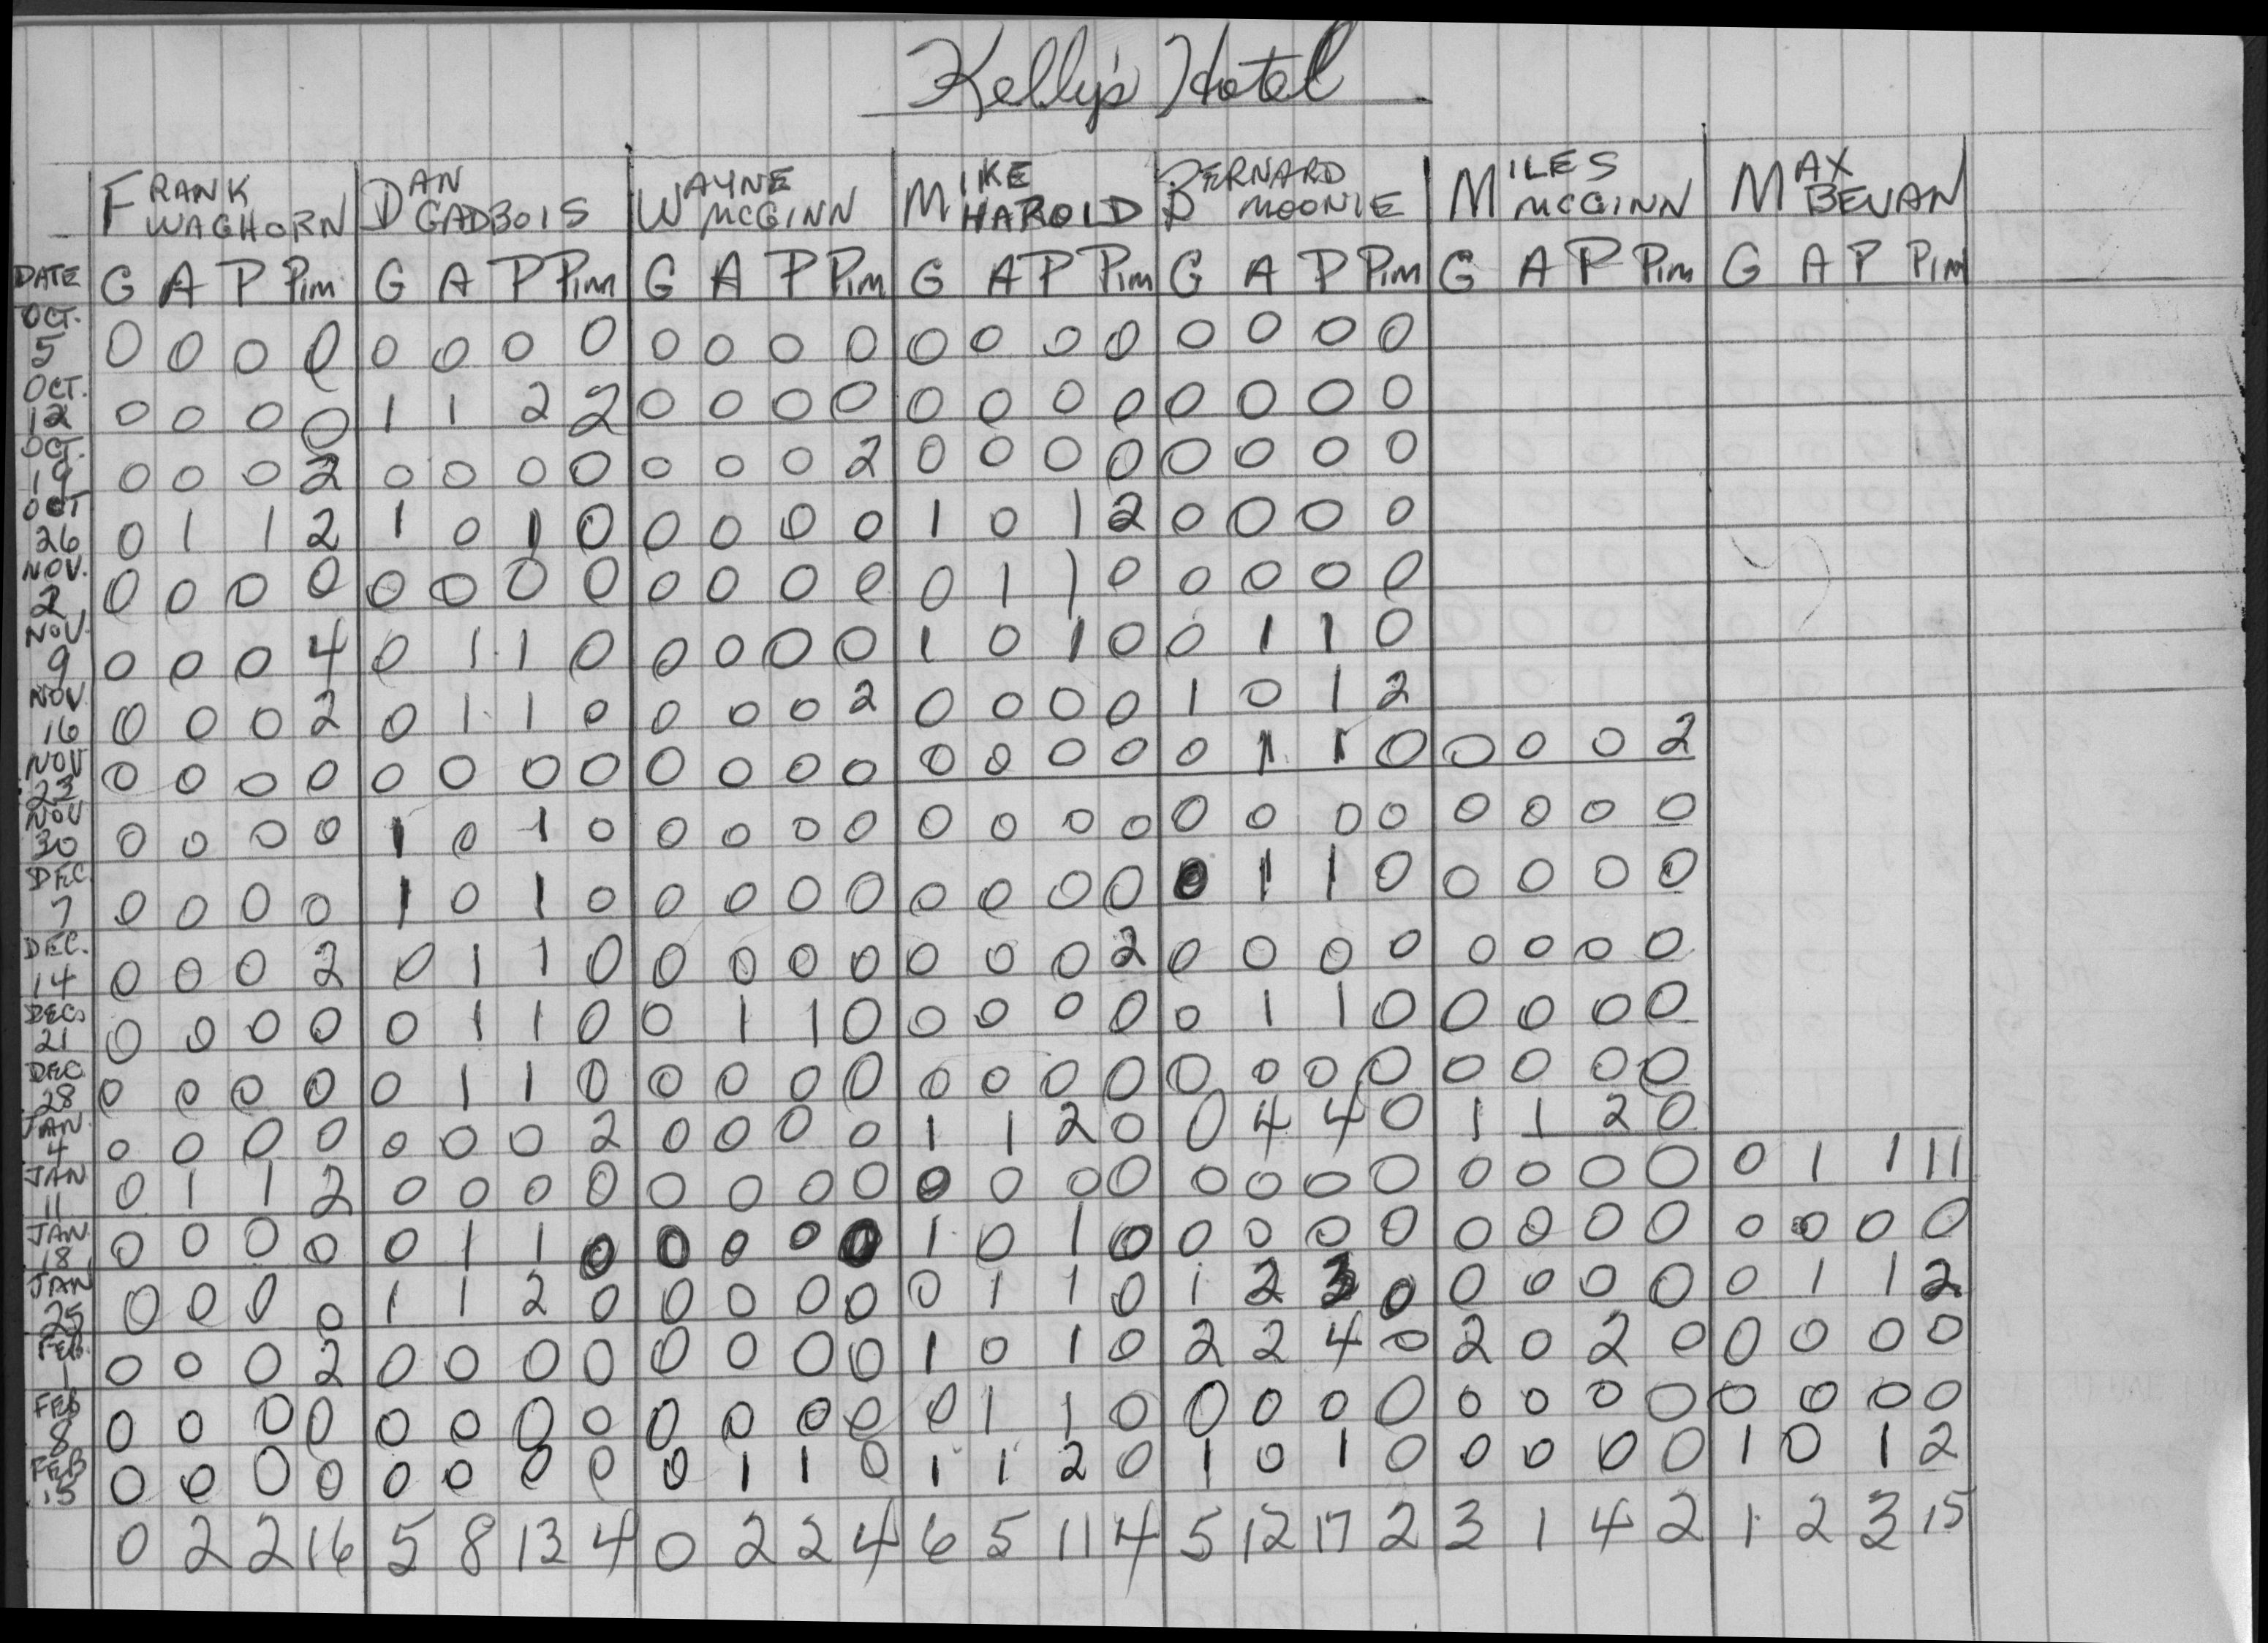 Kelly's Hotel
FRANK WAGHORN DAN GADBOIS WAYNE MCGINN MIKE HAROLD BERNARD MOONIE MILES MCGINN MAX BEVAN
DATE G A P Pim G A P Pim G A P Pim G A P Pim G A P Pim G A P Pim G A P Pim
OCT. 5 0 0 0 0 0 0 0 0 0 0 0 0 0 0 0 0 0 0 0 0
OCT. 12 0 0 0 0 1 1 2 2 0 0 0 0 0 0 0 0 0 0 0 0
OCT. 19 0 0 0 2 0 0 0 0 0 0 0 2 0 0 0 0 0 0 0 0
OCT 26 0 1 1 2 1 0 1 0 0 0 0 0 1 0 1 2 0 0 0 0
NOV. 2 0 0 0 0 0 0 0 0 0 0 0 0 0 1 1 0 0 0 0 0
NOV. 9 0 0 0 4 0 1 1 0 0 0 0 0 1 0 1 0 0 1 1 0
NOV 16 0 0 0 2 0 1 1 0 0 0 0 2 0 0 0 0 1 0 1 2
NOV 23 0 0 0 0 0 0 0 0 0 0 0 0 0 0 0 0 0 1 1 0 0 0 0 2
NOV 30 0 0 0 0 1 0 1 0 0 0 0 0 0 0 0 0 0 0 0 0 0 0 0 0
DEC. 7 0 0 0 0 1 0 1 0 0 0 0 0 0 0 0 0 0 1 1 0 0 0 0 0
DEC. 14 0 0 0 2 0 1 1 0 0 0 0 0 0 0 0 2 0 0 0 0 0 0 0 0
DEC. 21 0 0 0 0 0 1 1 0 0 1 1 0 0 0 0 0 0 1 1 0 0 0 0 0
DEC 28 0 0 0 0 0 1 1 0 0 0 0 0 0 0 0 0 0 0 0 0 0 0 0 0
JAN. 4 0 0 0 0 0 0 0 2 0 0 0 0 1 1 2 0 0 4 4 0 1 1 2 0
JAN 11 0 1 1 2 0 0 0 0 0 0 0 0 0 0 0 0 0 0 0 0 0 0 0 0 0 1 1 11
JAN. 18 0 0 0 0 0 1 1 0 0 0 0 0 1 0 1 0 0 0 0 0 0 0 0 0 0 0 0 0
JAN 25 0 0 0 0 1 1 2 0 0 0 0 0 0 1 1 0 1 2 3 0 0 0 0 0 0 1 1 2
FEB. 1 0 0 0 2 0 0 0 0 0 0 0 0 1 0 1 0 2 2 4 0 2 0 2 0 0 0 0 0
FEB 8 0 0 0 0 0 0 0 0 0 0 0 0 0 1 1 0 0 0 0 0 0 0 0 0 0 0 0 0
FEB 15 0 0 0 0 0 0 0 0 0 1 1 0 1 1 2 0 1 0 1 0 0 0 0 0 1 0 1 2
0 2 2 16 5 8 13 4 0 2 2 4 6 5 11 4 5 12 17 2 3 1 4 2 1 2 3 15